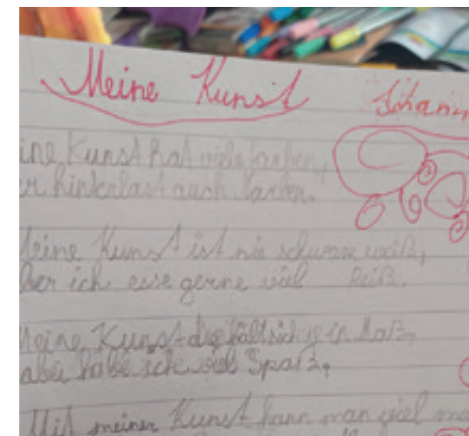 Meine Kunst Johann
ine Kunst hat viele farben,
er hinterlast auch Narben.
Meine Kunst ist nie schwarz weiß,
ber ich esse gerne viel Reiß.
Meine Kunst die hält sich in Maß,
abei habe ich viel Spaß,
Mit meiner Kunst kann man viel